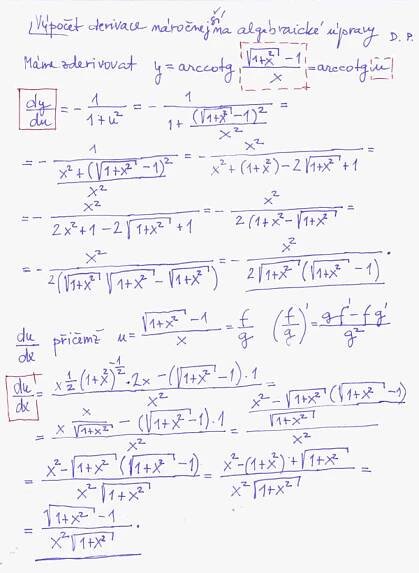 Výpočet derivace náročnější na algebraické úpravy D. P.
Máme zderivovat y = arccotg (√(1+x²) −1)/x = arccotg u
dy/du = − 1/(1+u²) = − 1/(1 + (√(1+x²) −1)²/x²) =
= − 1/((x² + (√(1+x²) −1)²)/x²) = − x²/(x² + (1+x²) − 2√(1+x²) + 1) =
= − x²/(2x² + 1 − 2√(1+x²) + 1) = − x²/(2(1+x² − √(1+x²)) =
= − x²/(2(√(1+x²) √(1+x²) − √(1+x²))) = − x²/(2√(1+x²) (√(1+x²) − 1)) .
du/dx přičemž u = (√(1+x²) −1)/x = f/g (f/g)' = (gf' − fg')/g²
du/dx = (x ½ (1+x²)^(−½) · 2x − (√(1+x²) −1) · 1)/x² =
= (x x/√(1+x²) − (√(1+x²) −1) · 1)/x² = ((x² − √(1+x²) (√(1+x²) −1))/√(1+x²))/x²
= (x² − √(1+x²) (√(1+x²) −1))/(x² √(1+x²)) = (x² − (1+x²) + √(1+x²))/(x² √(1+x²)) =
= (√(1+x²) − 1)/(x² √(1+x²)) .